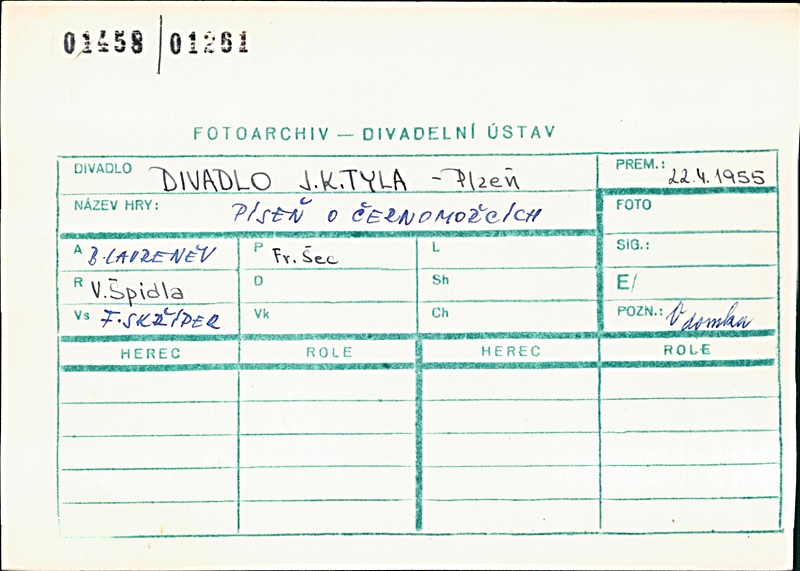 01458 01261
FOTOARCHIV — DIVADELNÍ ÚSTAV
DIVADLO DIVADLO J.K.TYLA - Plzeň PREM.: 22.4.1955
NÁZEV HRY: PÍSEŇ O ČERNOMOŘCÍCH FOTO
A B. LAVRENĚV P Fr. Šec L SIG.:
R V. Špidla D Sh E/
Vs F. SKŘÍPEK Vk Ch POZN.: Vdomka
HEREC ROLE HEREC ROLE